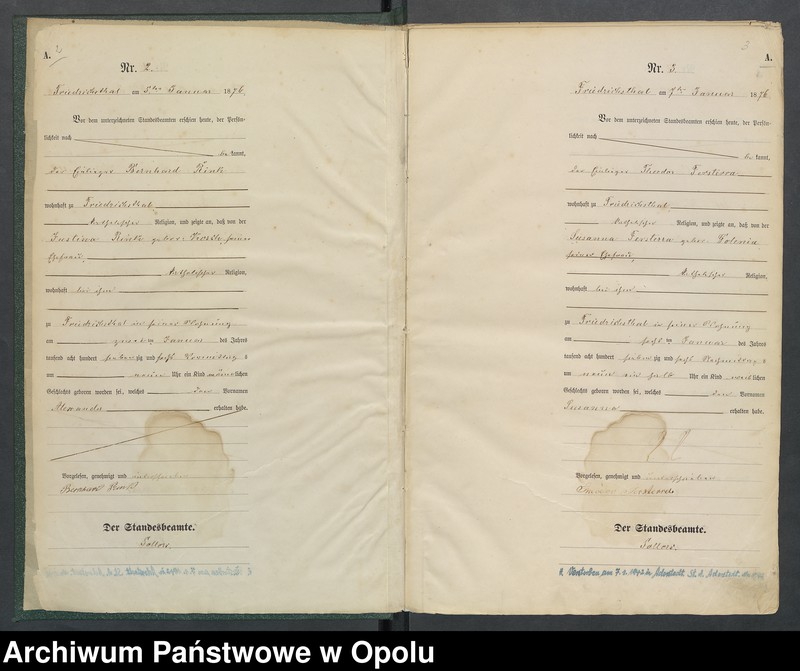 A.
2
Nr. 2.
Friedrichsthal am 5ten Januar 1876.
Vor dem unterzeichneten Standesbeamten erschien heute, der Persön-
lichkeit nach
be kannt,
der Häusler Bernhard
wohnhaft zu Friedrichsthal
katholischer Religion, und zeigte an, daß von der
Justina geborne seiner
Ehefrau,
katholischer Religion,
wohnhaft bei ihm
zu Friedrichsthal in seiner Wohnung
am ten Januar des Jahres
tausend acht hundert siebenzig und sechs Vormittag s
um neun Uhr ein Kind männlichen
Geschlechts geboren worden sei, welches den Vornamen
Alexander erhalten habe.
Vorgelesen, genehmigt und unterschrieben
Bernhard
Der Standesbeamte.
3
A.
Nr. 3
Friedrichsthal am 7ten Januar 1876
Vor dem unterzeichneten Standesbeamten erschien heute, der Persön-
lichkeit nach
be kannt,
der Häusler Theodor
wohnhaft zu Friedrichsthal
katholischer Religion, und zeigte an, daß von der
Susanna geborne
seiner Ehefrau,
katholischer Religion,
wohnhaft bei ihm
zu Friedrichsthal in seiner Wohnung
am sechs ten Januar des Jahres
tausend acht hundert siebenzig und sechs Nachmittag s
um neun ein halb Uhr ein Kind weiblichen
Geschlechts geboren worden sei, welches den Vornamen
Susanna erhalten habe.
Vorgelesen, genehmigt und unterschrieben
Der Standesbeamte.
Verstorben am 7. 2. 1942 in
Archiwum Państwowe w Opolu